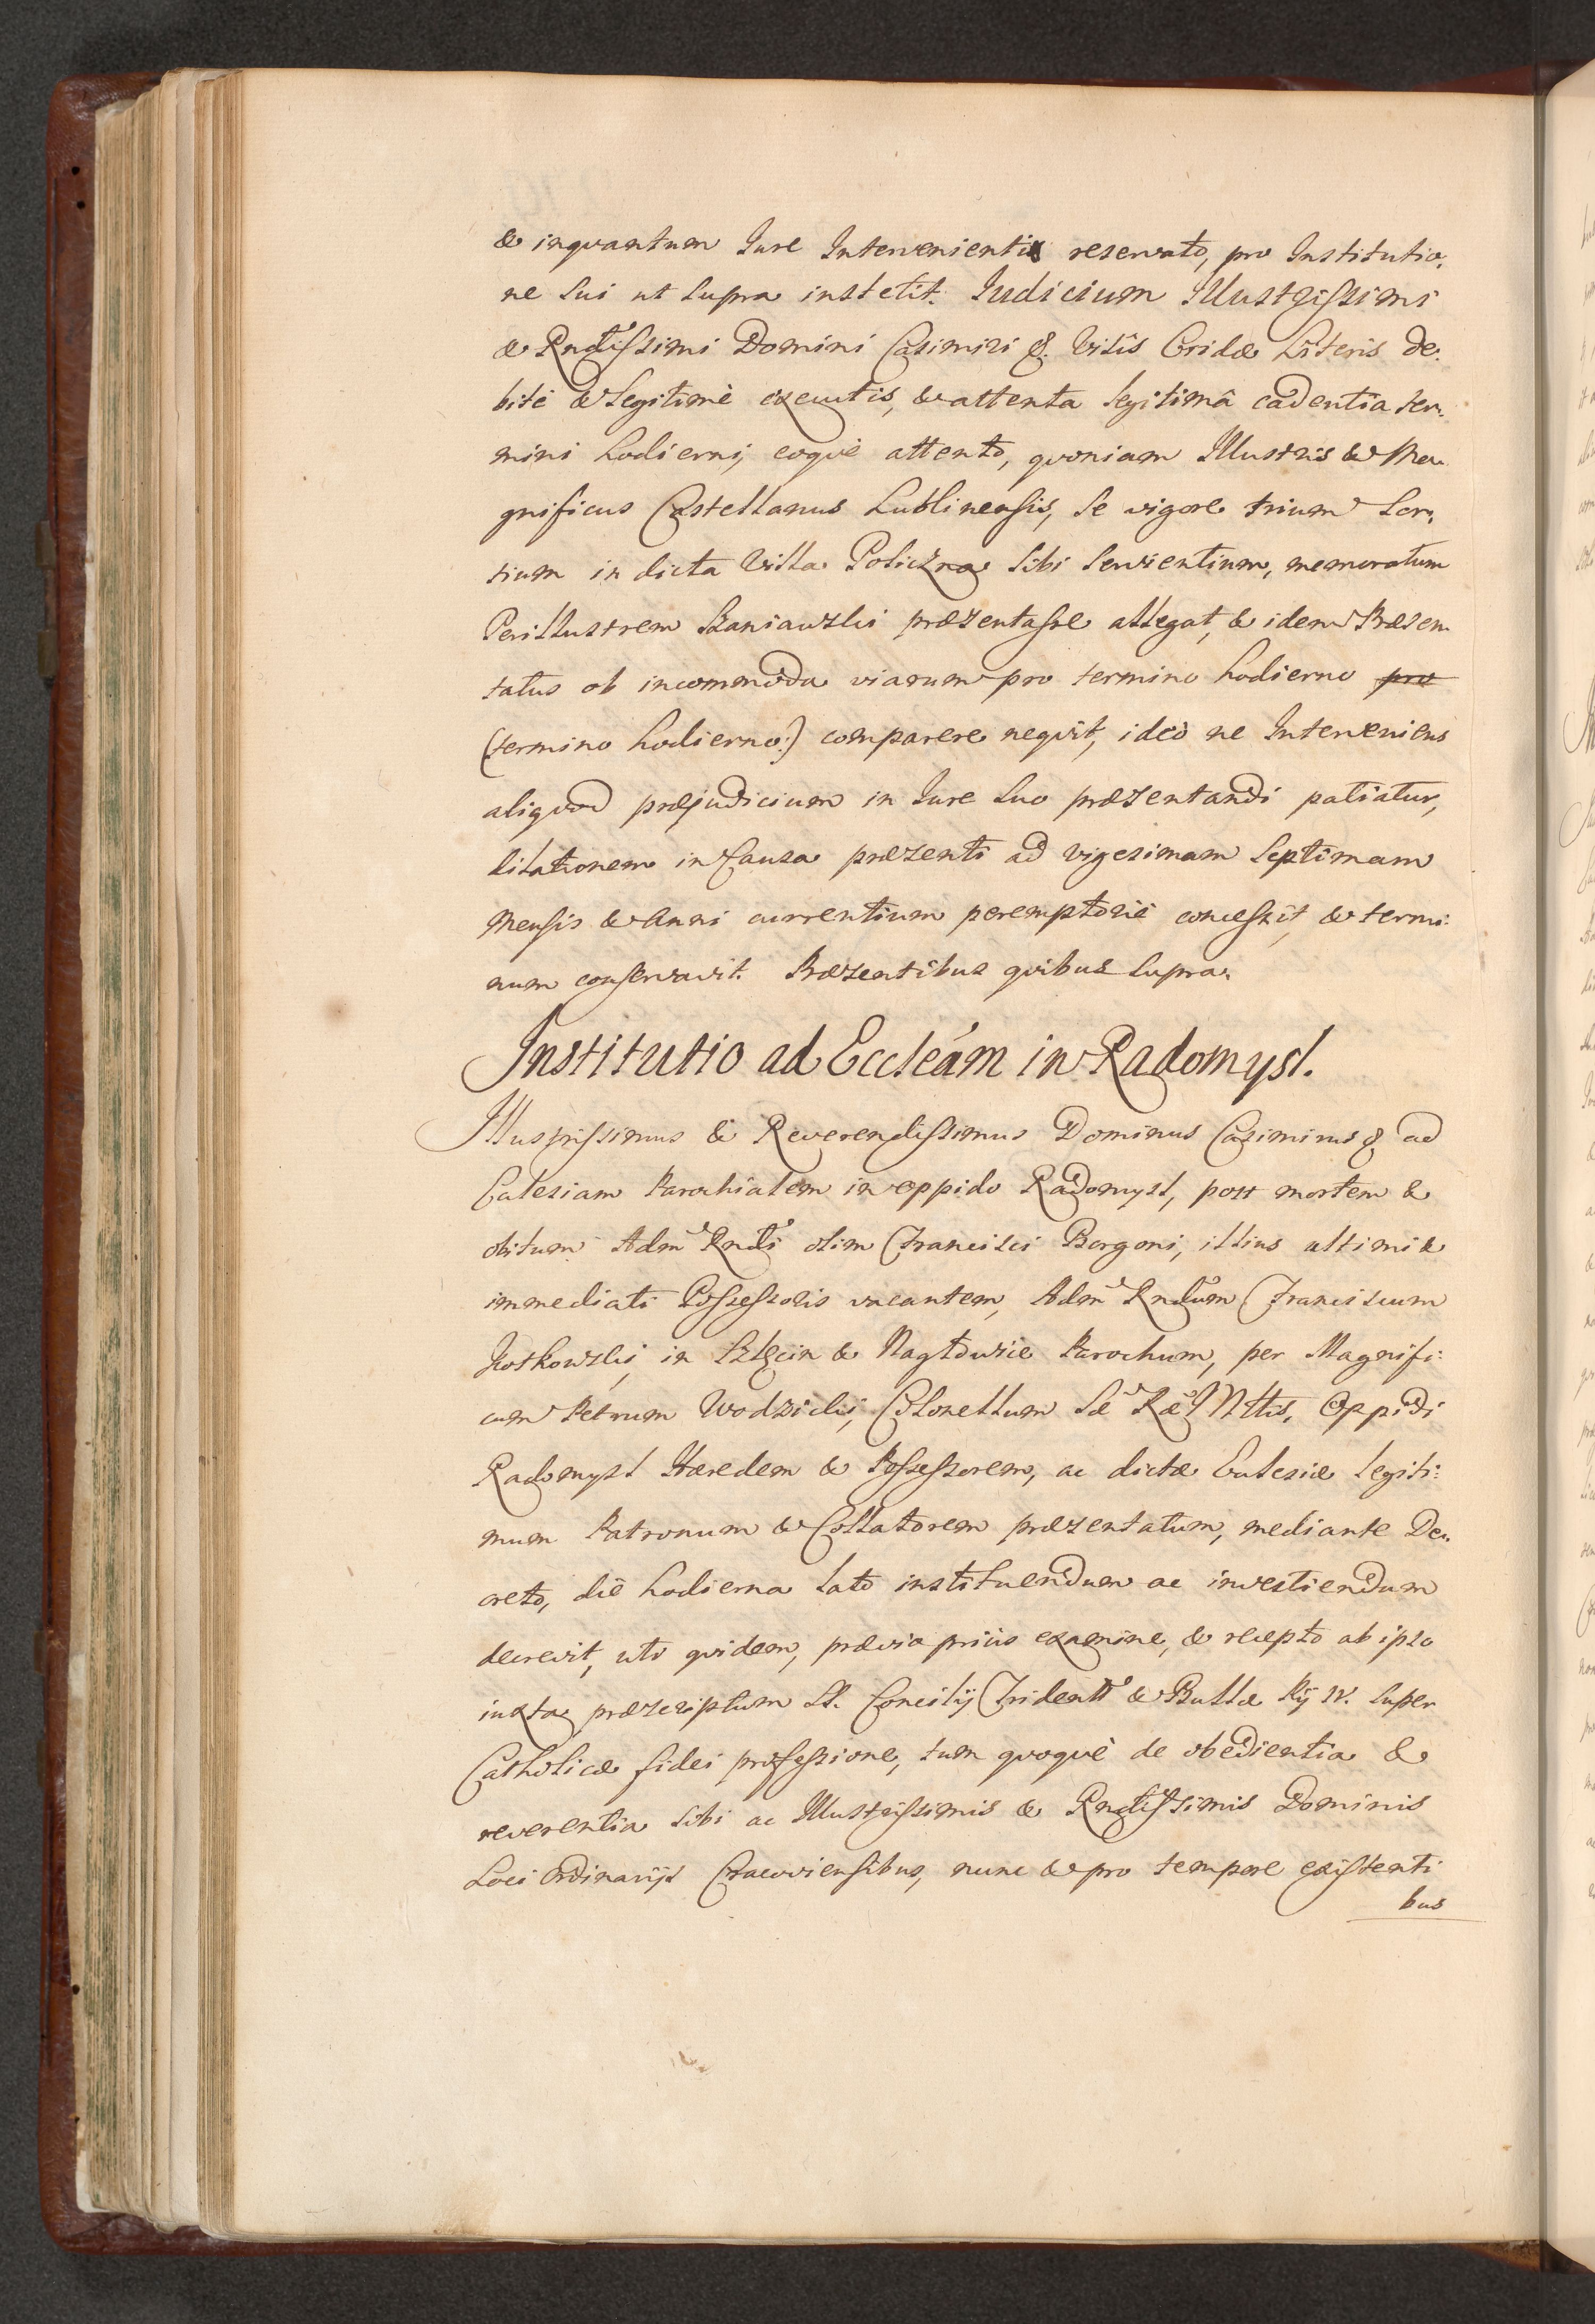 & inquantum Jure Intervenienti reservato, pro Institutio,
ne sui ut supra institit. Judicium Illustrissimi
& Rndissimi Domini Casimiri &. Visis Cridæ Literis de,
bitè & legitimè executis, & attenta legitimâ cadentia ter,
mini hodierni, eoquè attento, quoniam Illustris & Ma,
gnificus Castellanus Lublinensis, se vigore trium Sor,
tium in dicta Villa Policzna sibi servientium, memoratum
Perillustrem Szaniawski præsentasse allegat, & idem Præsen
tatus ob incommoda viarum pro termino hodierno pro
(termino hodierno:) comparere nequit, ideò ne Interveniens
aliquod præjudicium in Jure suo præsentandi patiatur,
dilationem in Causa præsenti ad vigesimam septimam
Mensis & Anni currentium peremptoriè concessit, & termi:
num conservavit. Præsentibus quibus supra.
Institutio ad Eccleām in Radomysl.
Illustrissimus & Reverendissimus Dominus Casimirus & ad
Ecclesiam Parochialem in oppido Radomysl, post mortem &
obitum Adm Rndi olim Francisci Borgoni, illius ultimi &
immediati Possessoris vacantem, Adm Rndum Franciscum
in & Nagłowice Parochum, per Magnifi:
cum Petrum Wodzicki, Colonellum Sæ Ræ Mttis, Oppidi
Radomysl Hæredem & Possessorem, ac dictæ Ecclesiæ legiti:
mum Patronum & Collatorem præsentatum, mediante De,
creto, die hodierna lato instituendum ac investiendum
decrevit, uti quidem, prævio priùs examine, & recepto ab ipso
iuxta præscriptum St. Concilij Tridentt & Bullæ Pij IV. super
Catholicæ fidei professione, tum quoquè de obedientia &
reverentia sibi ac Illustrissimis & Rndissimis Dominis
Loci Ordinarijs Cracoviensibus, nunc & pro tempore existenti
bus